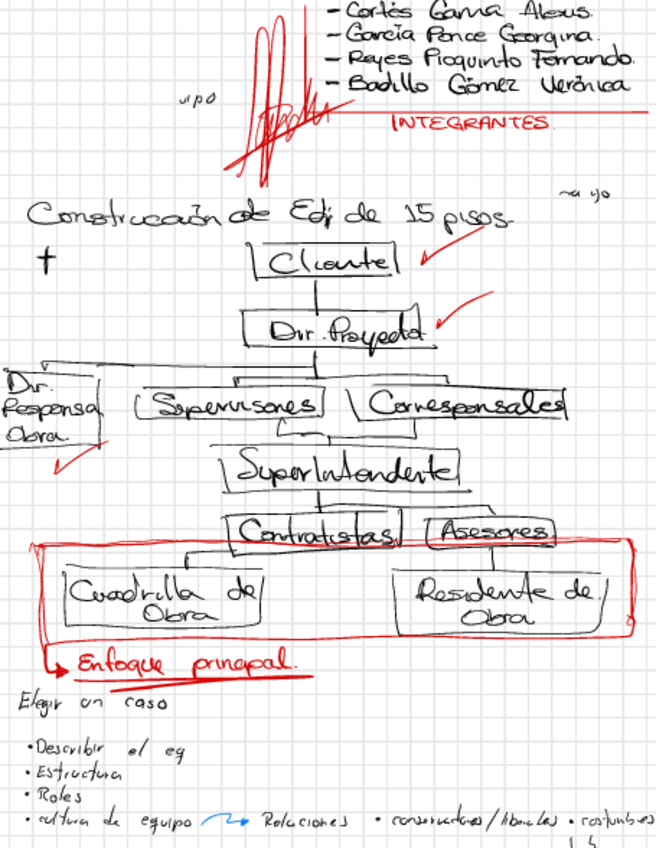 - Cortés Gama Alexus.
- García Ponce Georgina.
- Reyes Pioquinto Fernando.
- Badillo Gómez Verónica
INTEGRANTES
Construcción de Edi de 15 pisos.
Cliente
Dir. Proyecto
Dir. Responsa Obra
Supervisores
Corresponsales
SuperIntendente
Contratistas
Asesores
Cuadrilla de Obra
Residente de Obra
Enfoque principal.
Elegir un caso
• Describir el eq
• Estructura
• Roles
• cultura de equipo → Relaciones • conservadores/liberales • costumbes